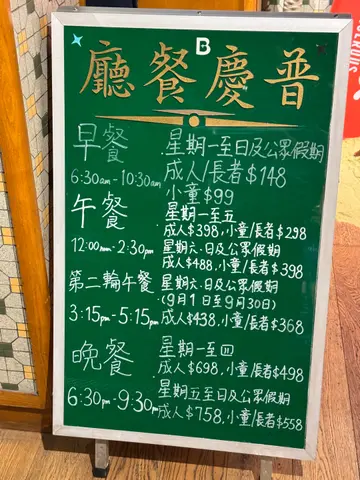 B
廳餐慶普
早餐 星期一至日及公眾假期
成人/長者$148
6:30am - 10:30am 小童$99
午餐 星期一至五
成人$398,小童/長者$298
12:00nn - 2:30pm 星期六、日及公眾假期
成人$488,小童/長者$398
第二輪午餐 星期六、日及公眾假期
(9月1日至9月30日)
3:15pm - 5:15pm 成人$438,小童/長者$368
晚餐 星期一至四
成人$698,小童/長者$498
6:30pm - 9:30pm 星期五至日及公眾假期
成人$758,小童/長者$558